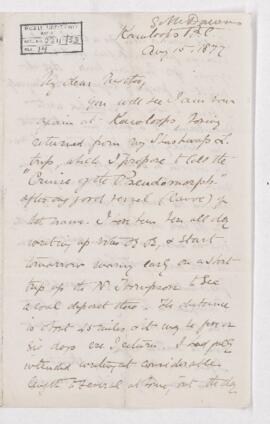 G. M. Dawson
Kamloops B.C.
Aug 15. 1877
My dear Mother,
You will see I am now
again at Kamloops, having
returned from my Shushwap L.
trip, which I propose to call the
"Cruise of the Pseudomorph"
after our good vessel (canoe) of
that name. I have been here all day
writing up notes &c &c, & start
tomorrow morning early on a short
trip up the N. Thompson to see
a coal deposit there. The distance
is about 45 miles & it may be five or
six days ere I return. I had fully
intended writing at considerable
length to several at home, but the day